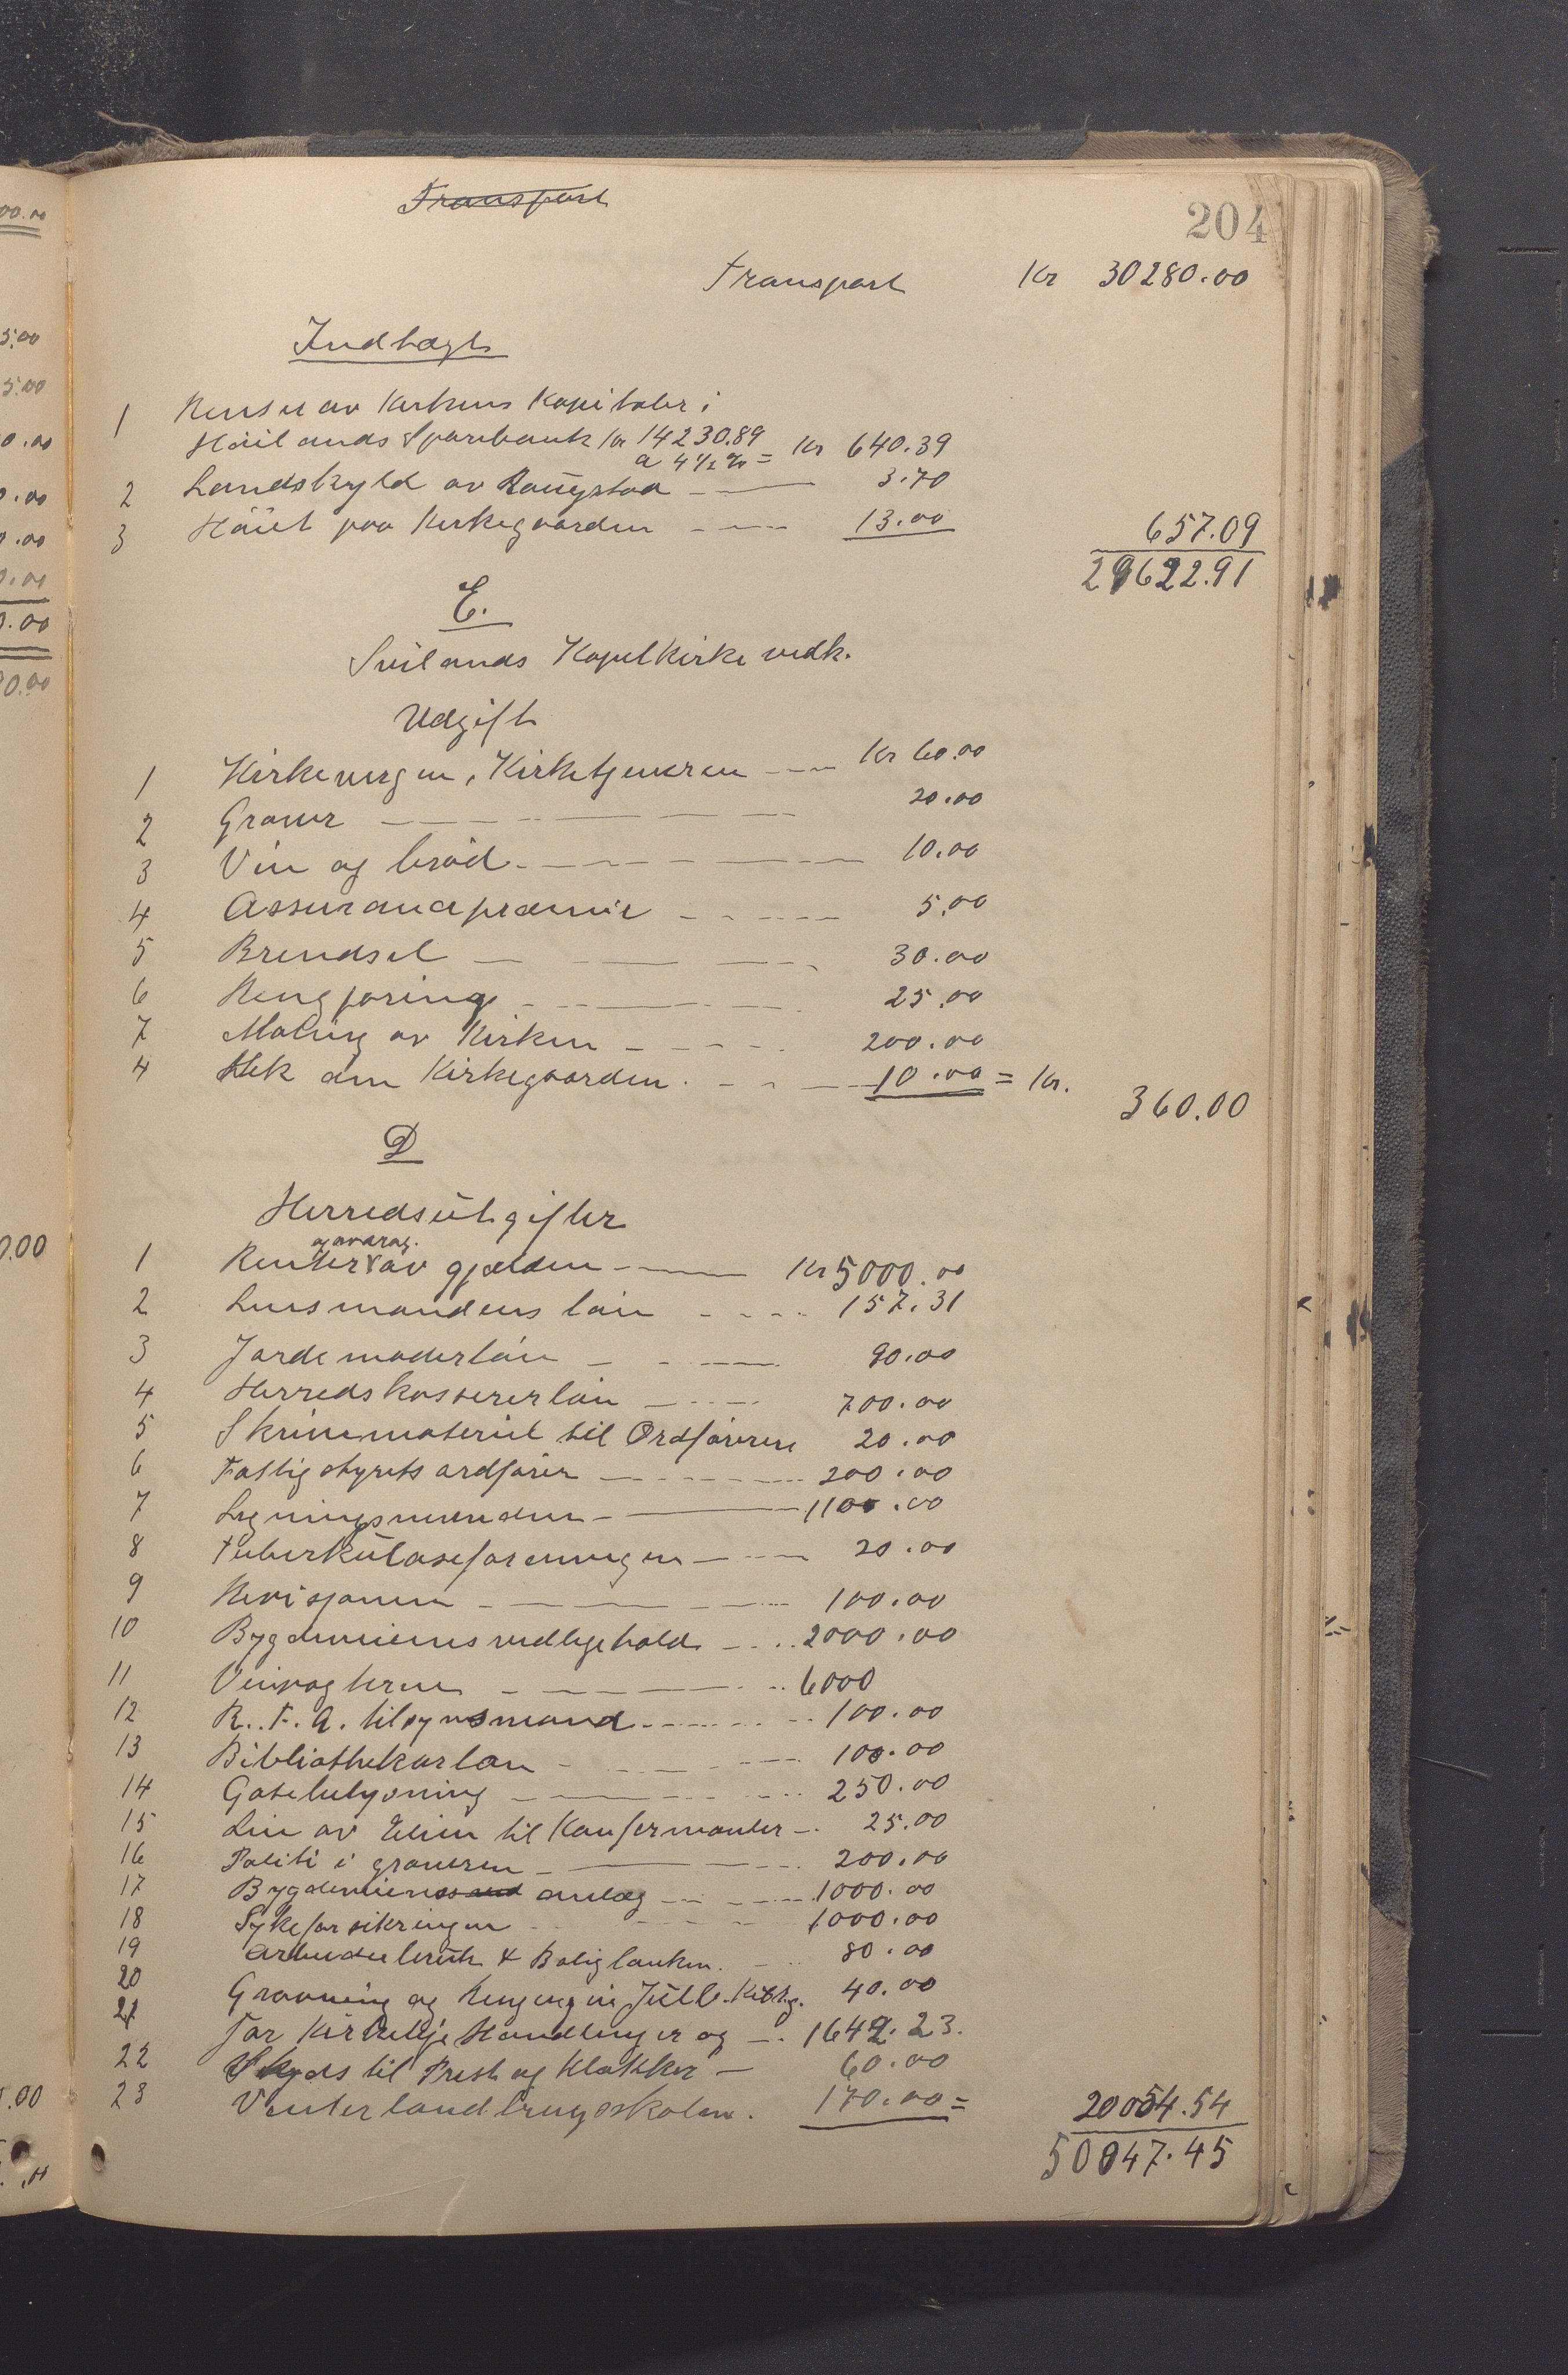 Transport
204
Transport Kr 30280.00
Indtægt
1 Renter av Kirkens Kapitaler i
Høilands Sparebank Kr 14230.89
a 4½ % = Kr 640.39
2 Landskyld av Raugstad 3.70
3 Høiet paa Kirkegaarden 13.00
657.09
29622.91
E.
Svilands Kapelkirke vedk.
Udgift
1 Kirkevergen, Kirketjeneren Kr 60.00
2 Graver 20.00
3 Vin og brød 10.00
4 Assurancepræmie 5.00
5 Brendsel 30.00
6 Rengjøring 25.00
7 Maling av Kirken 200.00
4 Hek om Kirkegaarden 10.00 = Kr. 360.00
D
Herredsutgifter
og avdrag.
1 Renter av gjælden Kr 5000.00
2 Lensmandens løn 157.31
3 Jordemoderløn 90.00
4 Herredskassererløn 700.00
5 Skrivemateriel til Ordføreren 20.00
6 Fattigstyrets ordfører 200.00
7 Ligningsmænden 1100.00
8 Tuberkuloseforeningen 20.00
9 Revisjonen 100.00
10 Bygdeveienes vedligehold 2000.00
11 Veivogterne 6000
12 R. F. A. tilsynsmand 100.00
13 Bibliothekarløn 100.00
14 Gatebelysning 250.00
15 Lin av til Konfirmanter 25.00
16 Politi i graveren 200.00
17 Bygdeveienes anlæg 1000.00
18 Sykeforsikringen 1000.00
19 Arbeiderbruk & Boligbanken. 80.00
20 Gravning og Ringing i Julb. Kirkg. 40.00
21 For Kirkelige Handlinger og 1642.23.
22 Skyds til Prest og Klokker 60.00
23 Vinterlandbrugsskolen. 170.00 =
20054.54
50047.45